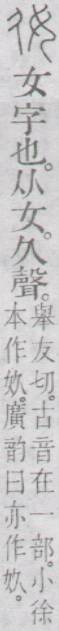 女字也。从女。久聲。
舉友切。古音在一部。小徐
本作奺。廣韵曰亦作奺。